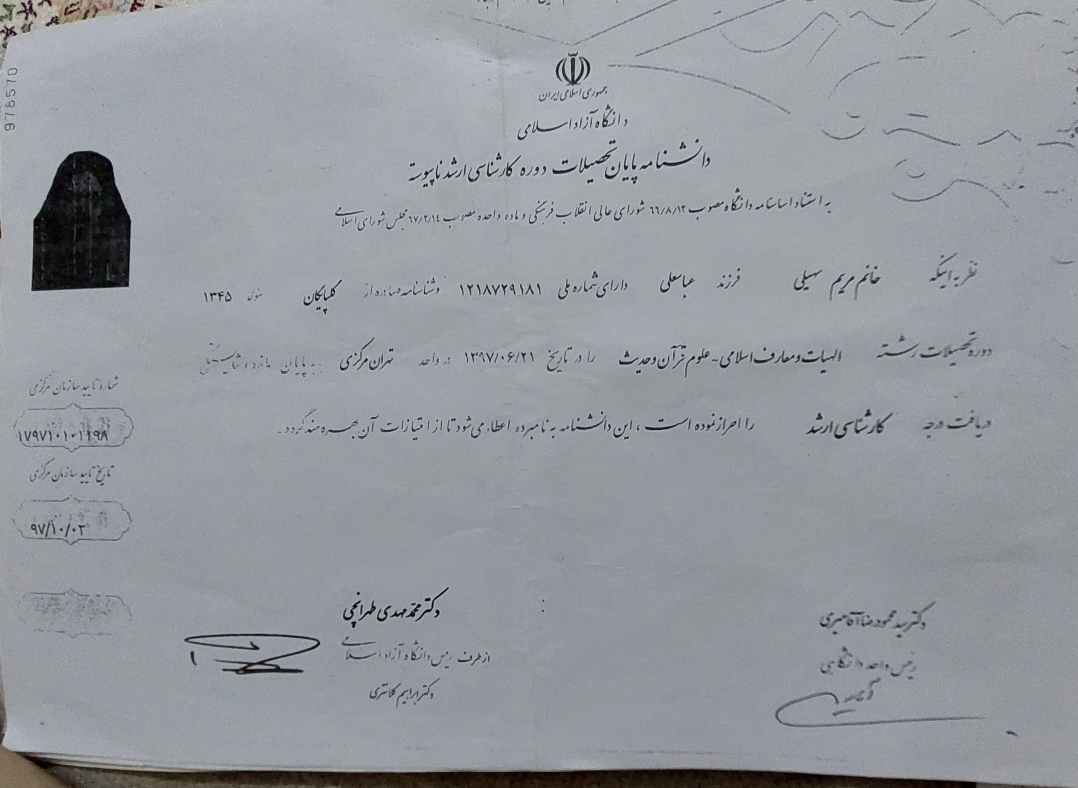 978570
جمهوری اسلامی ایران
دانشگاه آزاد اسلامی
دانشنامه پایان تحصیلات دوره کارشناسی ارشد ناپیوسته
به استناد اساسنامه دانشگاه مصوب ۶۶/۸/۱۲ شورای عالی انقلاب فرهنگی و ماده واحده مصوب ۶۷/۲/۱۴ مجلس شورای اسلامی
نظر به اینکه خانم مریم سهیلی فرزند عباسعلی دارای شماره ملی ۱۲۱۸۷۲۹۱۸۱ و شناسنامه صادره از گلپایگان متولد ۱۳۴۵
دوره تحصیلات رشته الهیات و معارف اسلامی - علوم قرآن و حدیث را در تاریخ ۱۳۹۷/۰۶/۲۱ در واحد تهران مرکزی به پایان رسانده و شایستگی
دریافت درجه کارشناسی ارشد را احراز نموده است ، این دانشنامه به نامبرده اعطاء می‌شود تا از امتیازات آن بهره‌مند گردد .
شماره تایید سازمان مرکزی
۱۷۹۷۱۰۱۰۱۱۹۸
تاریخ تایید سازمان مرکزی
۹۷/۱۰/۰۳
دکتر سید محمود رضا آقامیری
رئیس واحد دانشگاهی
دکتر محمد مهدی طهرانچی
از طرف رئیس دانشگاه آزاد اسلامی
دکتر ابراهیم کلانتری